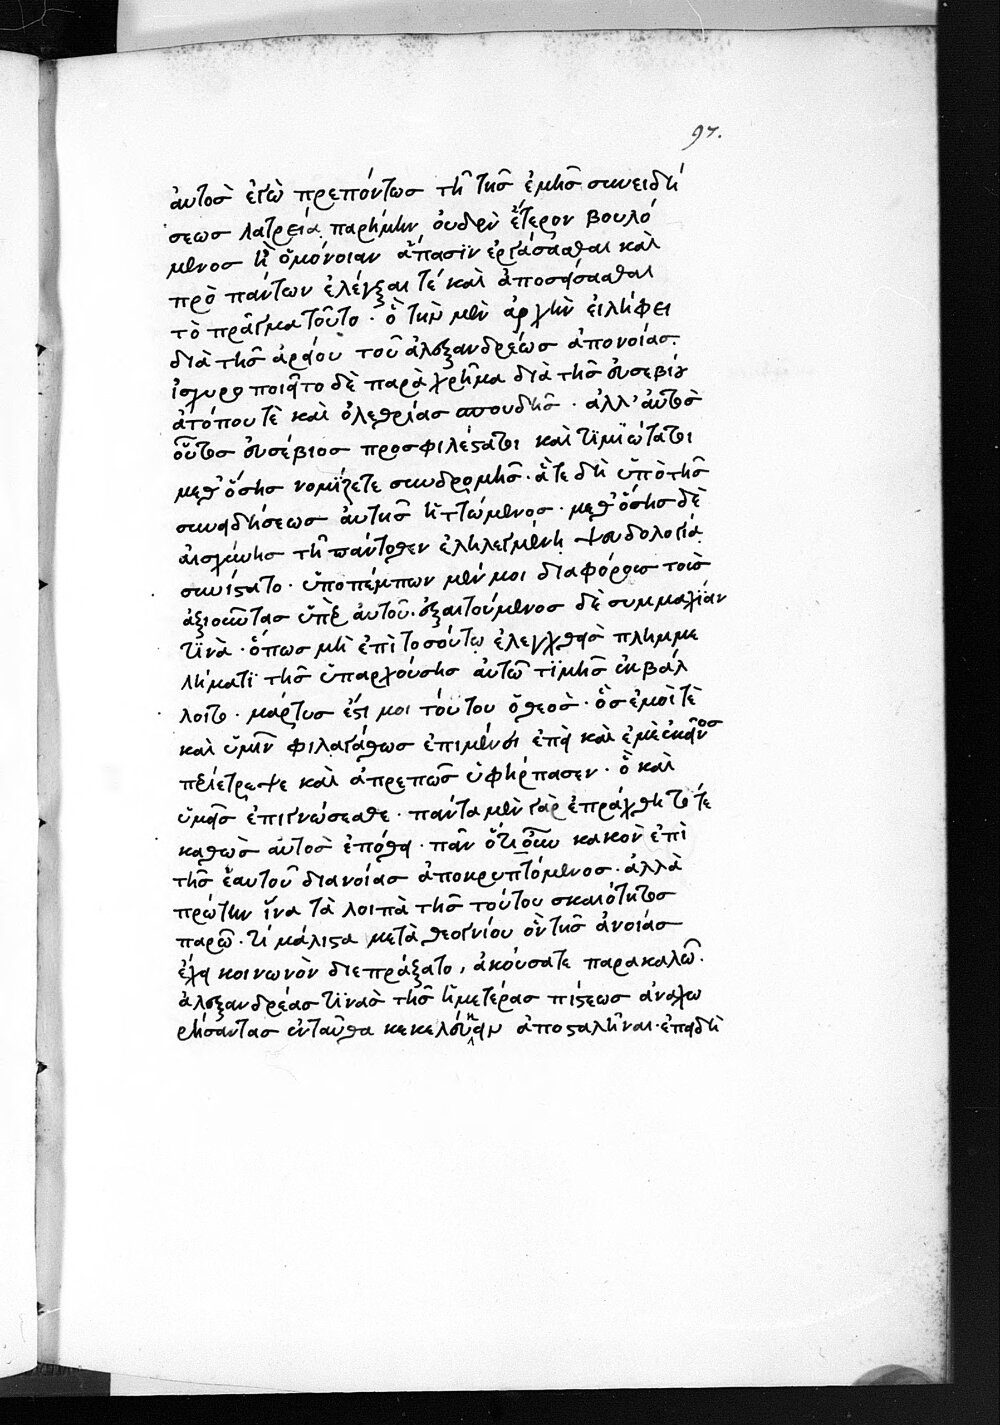 97.
αὐτὸσ ἐγὼ πρεπόντωσ τῆ τῆσ ἐμῆσ συνειδή
σεωσ λατρεία παρήμην οὐδὲν ἕτερον βουλό
μενοσ ἢ ὁμόνοιαν ἅπασϊν ἐργάσασθαι καὶ
πρὸ πάντων ἐλέγξαι τέ καὶ ἀποσείσασθαι
τὸ πρᾶγμα τοῦτο · ὃ τὴν μὲν ἀρχὴν εἰλήφει
διὰ τῆσ ἀρείου τοῦ ἀλεξανδρέωσ ἀπονοίασ.
ἰσχυροποιεῖτο δὲ παρὰ χρῆμα διὰ τῆσ εὐσεβίου
ἀτόπου τὲ καὶ ὀλεθρίασ σπουδῆσ · ἀλλ' αὐτὸσ
οὗτοσ εὐσέβιοσ προσφιλέστατοι καὶ τϊμϊώτατοι
μεθ' ὅσησ νομίζετε συνδρομῆσ · ἅτε δὴ ὑπὸ τῆσ
συνειδήσεωσ αὐτῆσ ἡττώμενοσ · μεθ' ὅσησ δὲ
αἰσχύνησ τῆ πάντοθεν ἐληλεγμένη ψευδολογία
συνίστατο · ὑποπέμπων μέν μοι διαφόρουσ τοὺσ
ἀξιοῦντασ ὑπὲρ αὐτοῦ · ἐξαιτούμενοσ δὲ συμμαχίαν
τϊνὰ · ὅπωσ μὴ ἐπὶ τοσούτω ἐλεγχθεὶσ πλημμε
λήματϊ τῆσ ὑπαρχούσησ αὐτῶ τϊμῆσ ἐκβάλ
λοιτο · μάρτυσ ἐστί μοι τούτου ὁ θεὸσ · ὃσ ἐμοὶ τὲ
καὶ ὑμῖν φιλαγάθωσ ἐπιμένοι ἐπεὶ καὶ ἐμὲ ἐκεῖνοσ
περιέτρεψε καὶ ἀπρεπῶσ ὑφήρπασεν · ὃ καὶ
ὑμεῖσ ἐπιγνώσεσθε · πάντα μὲν γὰρ ἐπράχθη τότε
καθὼσ αὐτοσ ἐπόθει · πᾶν ὅτι οὖν κακὸν ἐπὶ
τῆσ ἑαυτοῦ διανοίασ ἀποκρυπτόμενοσ · ἀλλὰ
πρώτην ἵνα τὰ λοιπὰ τῆσ τούτου σκαιότητοσ
παρῶ · τί μάλιστα μετὰ θεογνίου ὃν τῆσ ἀνοίασ
ἔχει κοινωνὸν διεπράξατο, ἀκούσατε παρακαλῶ.
ἀλεξανδρέασ τϊνὰσ τῆσ ἡμετέρασ πίστεωσ ἀναχω
ρήσαντασ ἐνταῦθα κεκελεύκειν ἀποσταλῆναι · ἐπειδὴ